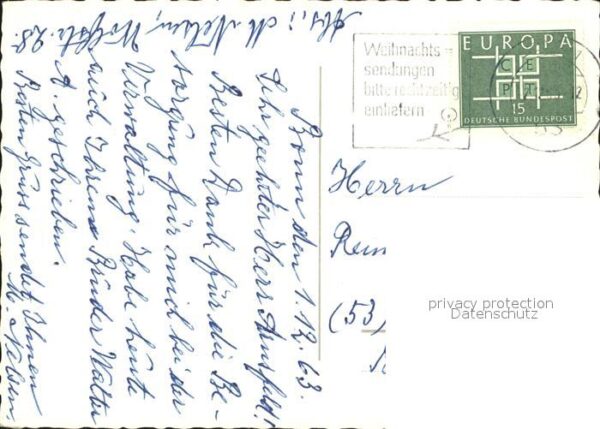 Abs.: M. Nelsen, Wolfstr. 28
Bonn den 1.12.63.
Sehr geehrter Herr Arnsfeld!
Besten Dank für die Be-
sorgung für mich bei der
Verwaltung. Habe heute
auch Ihrem Bruder Walter
A. geschrieben.
Besten Gruss sendet Ihnen
M. Nelsen
Weihnachts-
sendungen
bitte rechtzeitig
einliefern
EUROPA
C E
P T
15
DEUTSCHE BUNDESPOST
Herrn
(53)
privacy protection
Datenschutz